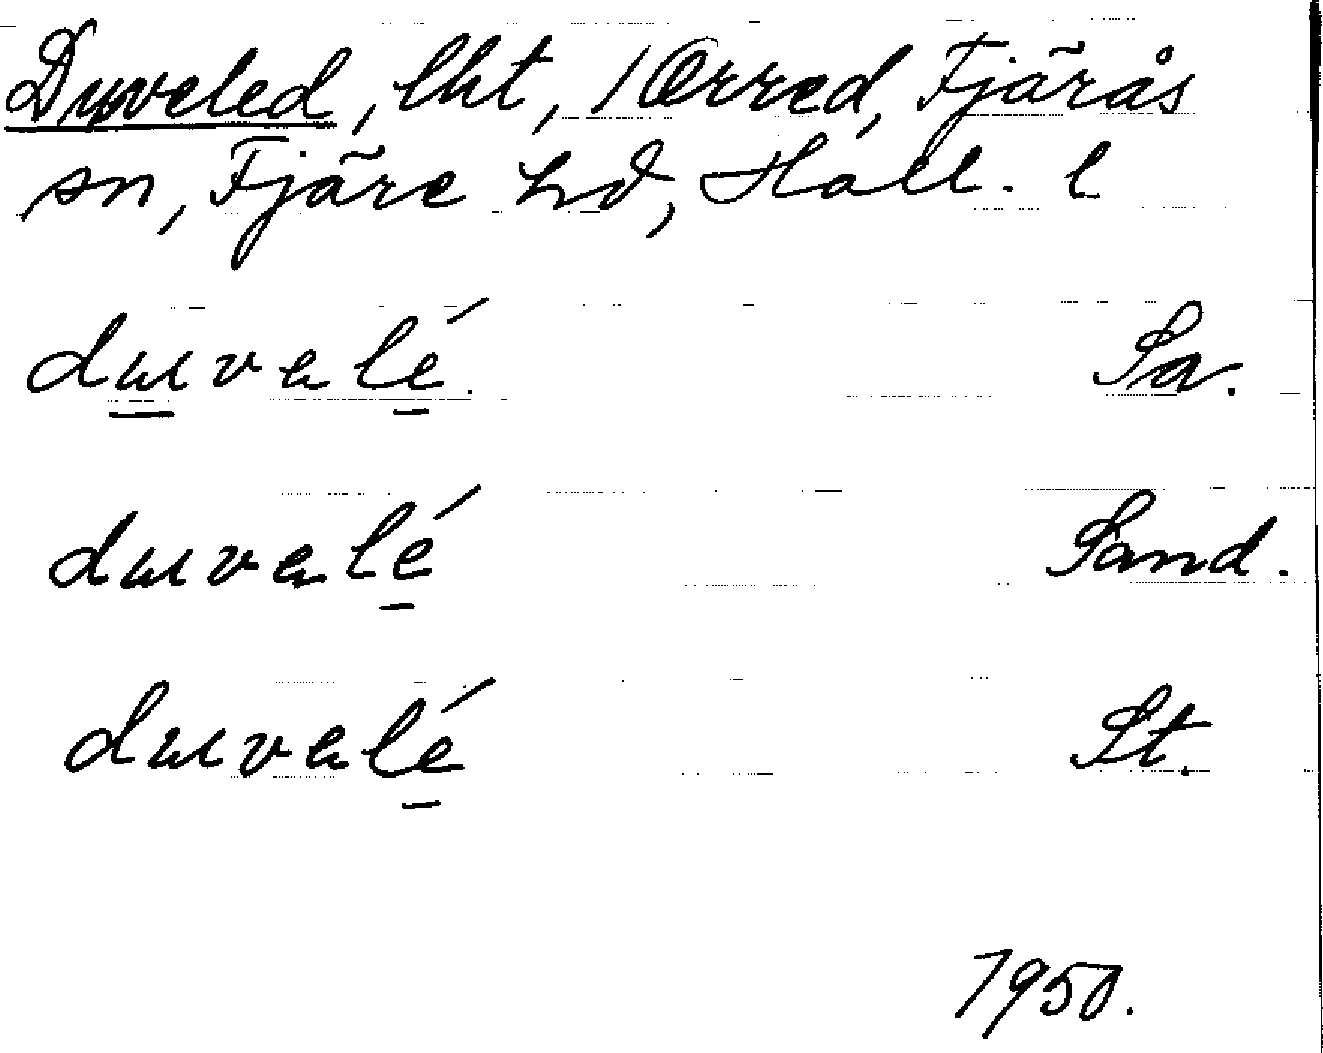 Duveled, lht, 1 Örred, Fjärås
sn, Fjäre hd, Hall. l
duvalé. Sa.
duvalé Sand.
duvalé St.
1950.